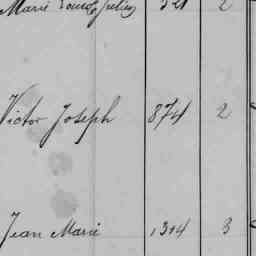 Marie Louise 321 2
Victor Joseph 874 2
Jean Marie 1304 3